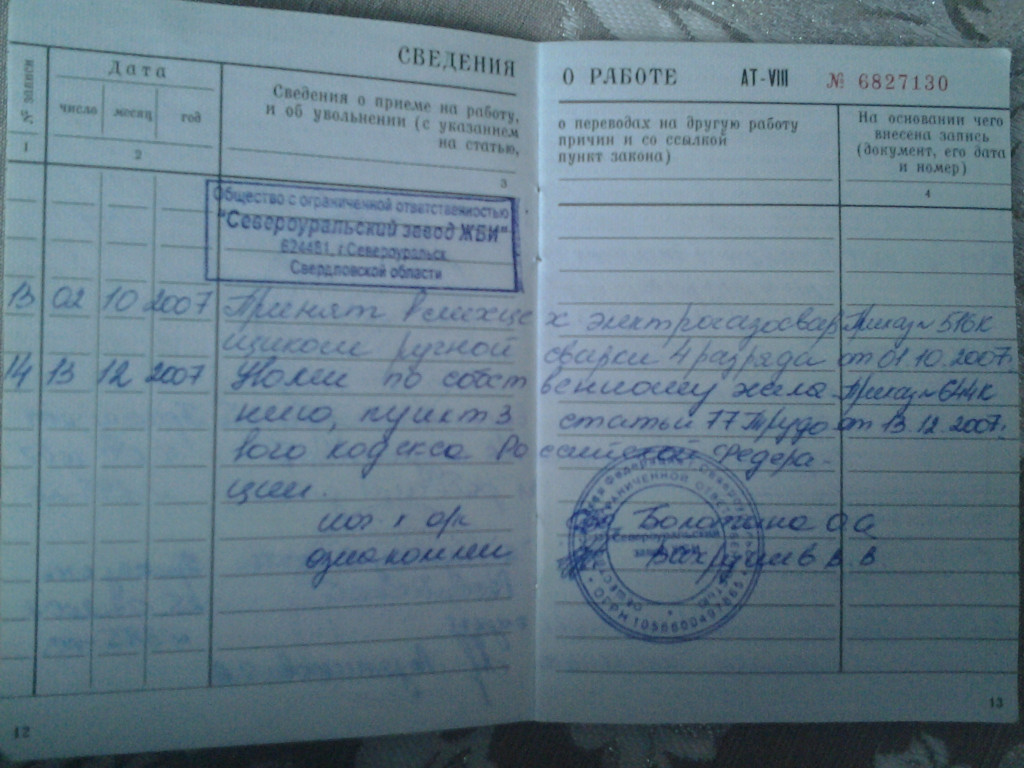 СВЕДЕНИЯ О РАБОТЕ АТ-VIII № 6827130
№ записи
Дата
число месяц год
Сведения о приеме на работу,
и об увольнении (с указанием
на статью,
о переводах на другую работу
причин и со ссылкой
пункт закона)
На основании чего
внесена запись
(документ, его дата
и номер)
1 2 3 4
Общество с ограниченной ответственностью
"Североуральский завод ЖБИ"
624481, г.Североуральск
Свердловской области
13 02 10 2007 Принят в мехцех электрогазосвар Приказ № 516к
щиком ручной сварки 4 разряда от 01.10.2007г.
14 13 12 2007 Уволен по собственному жела Приказ № 644к
нию, пункт 3 статьи 77 Трудо от 13.12.2007г.
вого кодекса Российской Федера-
ции.
о/к
ознакомлен Вахрушев В.В
Североуральский
завод
12
13